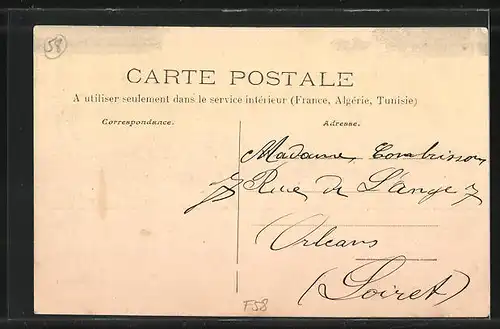 58
CARTE POSTALE
A utiliser seulement dans le service intérieur (France, Algérie, Tunisie)
Correspondance.
Adresse.
Madame Combrisson
7 Rue de L'ange 7
Orléans
(Loiret)
F58